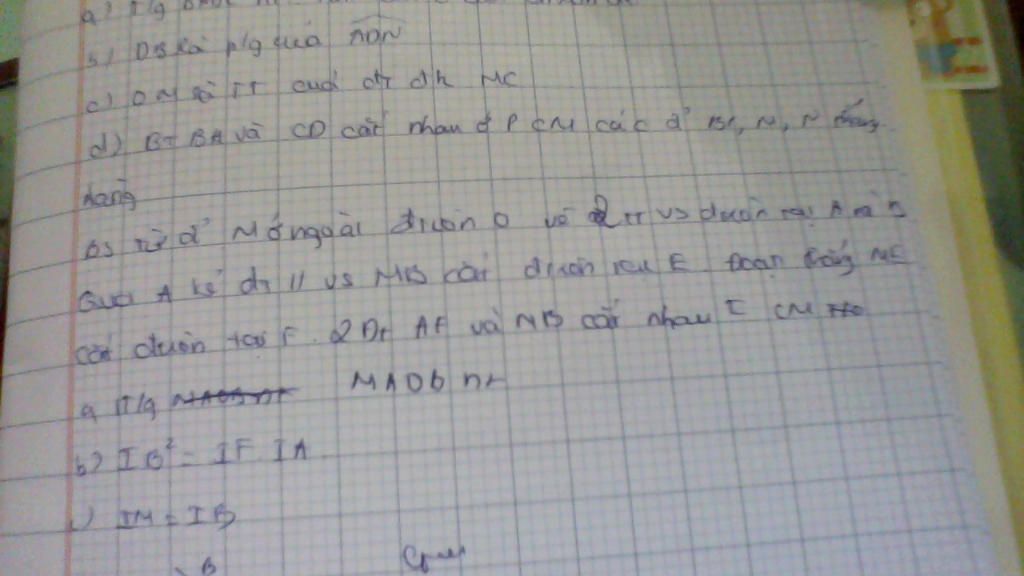 a) T/g
b) DB là p/g của
c) OM là TT của đt đk MC
d) BT BA và CD cắt nhau ở P CM các đ' M, N thẳng
hàng
B5 Từ đ' M ở ngoài đtròn O vẽ 2 TT vs đtròn tại A và B
Qua A kẻ đt // vs MB cắt đtròn tại E Đoạn thẳng ME
cắt đtròn tại F. 2 Dt AF và MB cắt nhau I CM
a, T/g MAOB nt
b) IB² = IF. IA
c) IM = IB
B